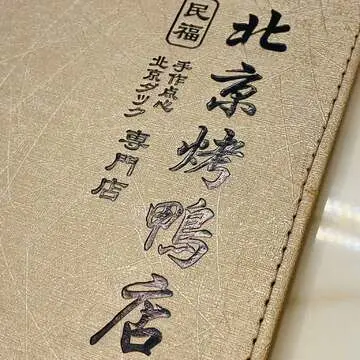 民福
北京烤鴨店
手作点心
北京ダック
専門店